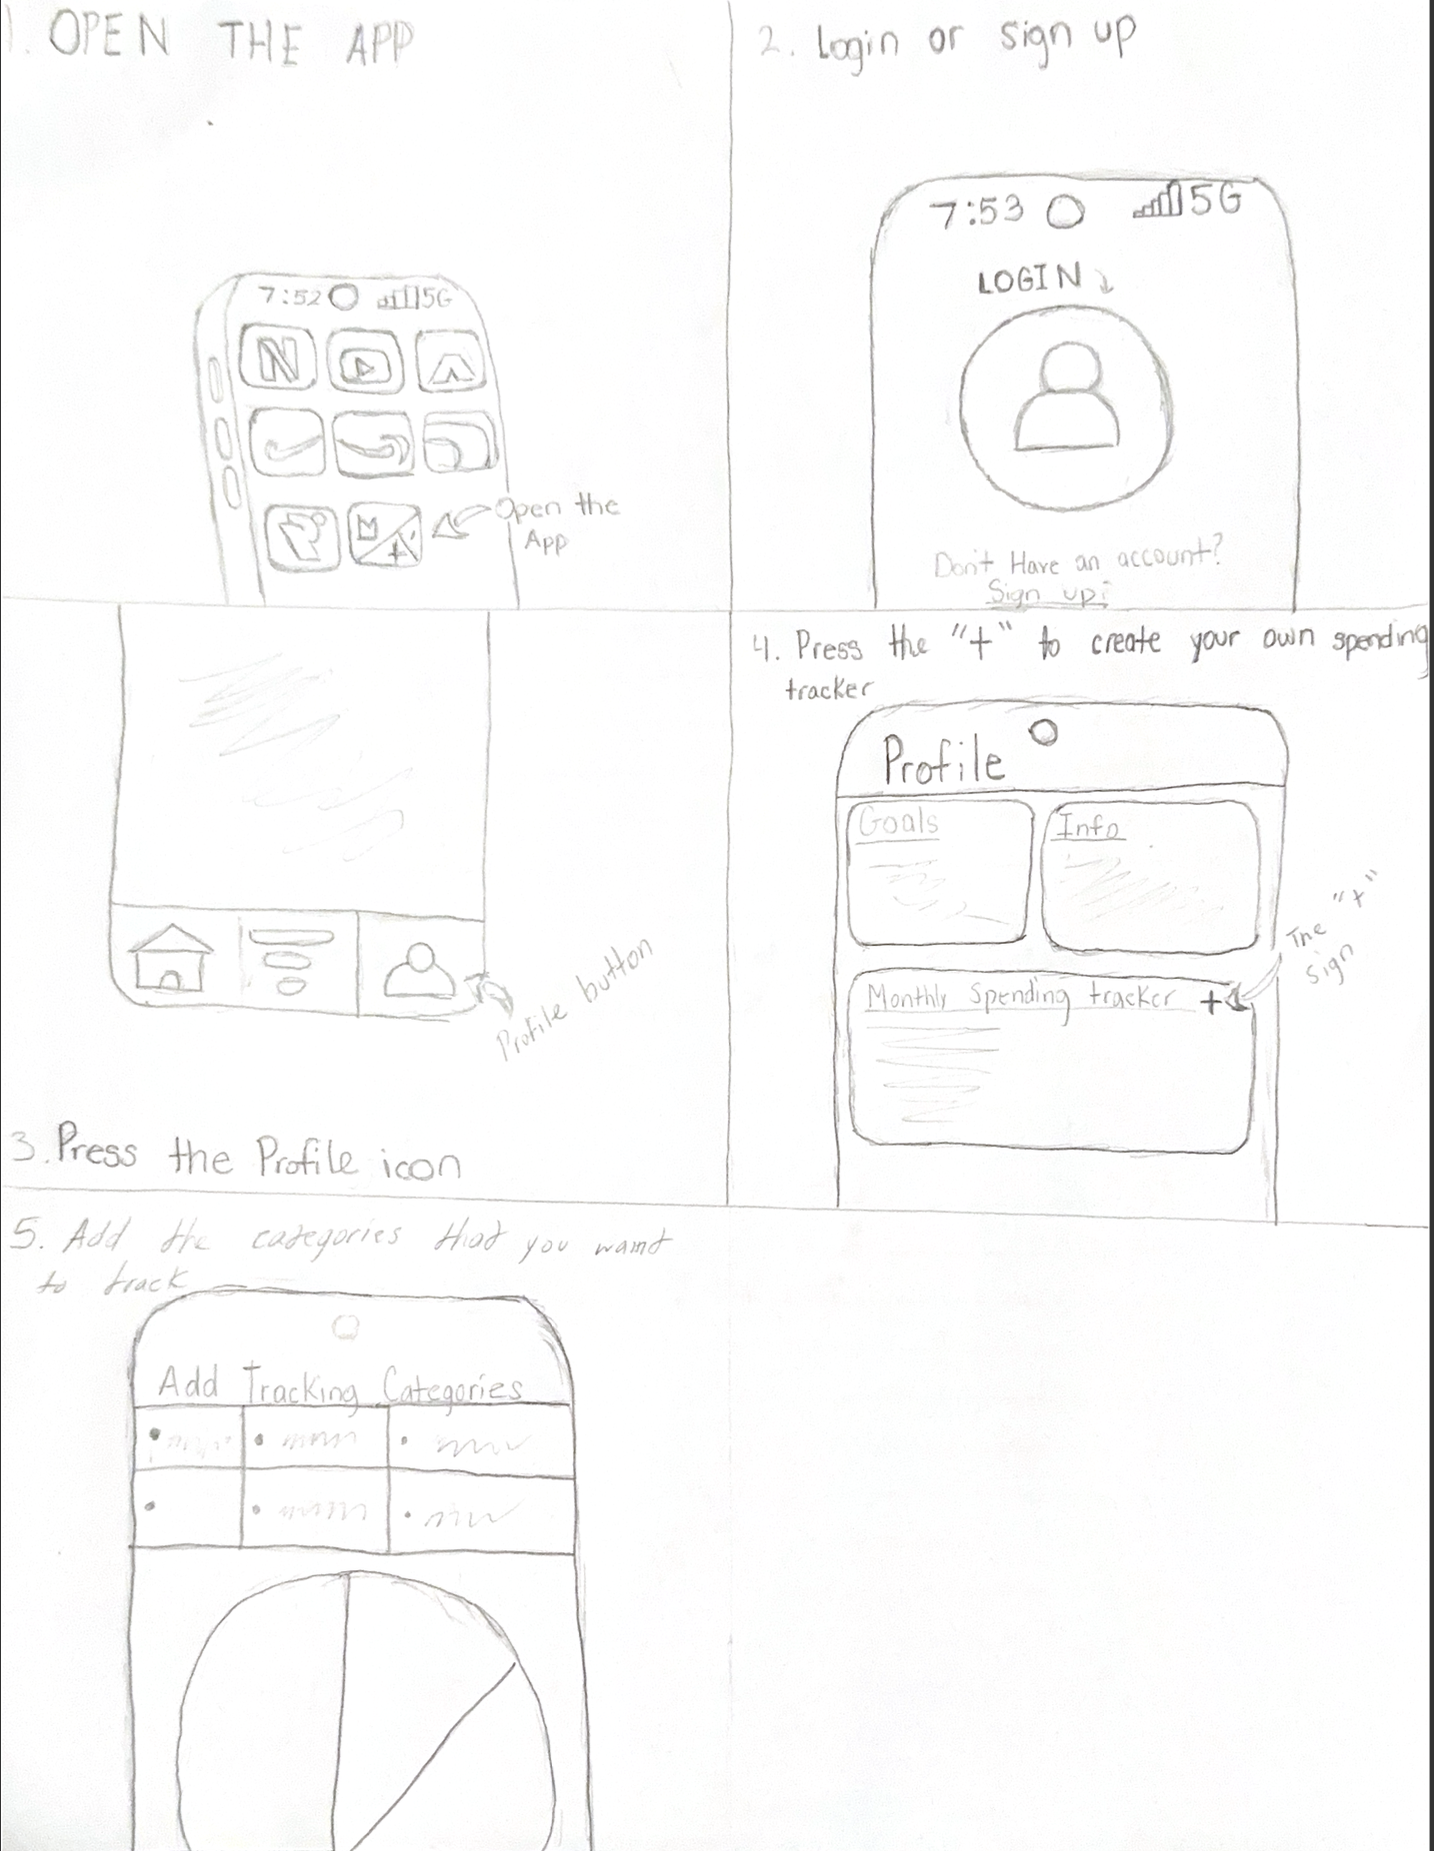 1. OPEN THE APP
7:52 5G
N
Open the
App
M
2. Login or sign up
7:53 5G
LOGIN
Don't Have an account?
Sign up!
Profile button
3. Press the Profile icon
4. Press the "+" to create your own spending
tracker
Profile
Goals
Info
The "+"
sign
Monthly Spending tracker +
5. Add the categories that you wamt
to track
Add Tracking Categories